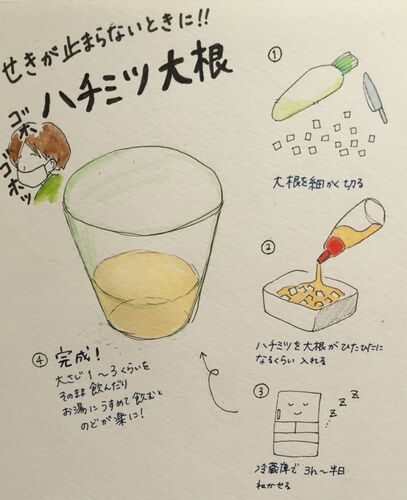 せきが止まらないときに!!
ハチミツ大根
ゴホッ
ゴゴホッ
①
大根を細かく切る
②
ハチミツを大根がひたひたに
なるくらい入れる
③
z z z
冷蔵庫で 3h〜半日
ねかせる
④ 完成!
大さじ1〜3くらいを
そのまま飲んだり
お湯にうすめて飲むと
のどが楽に!